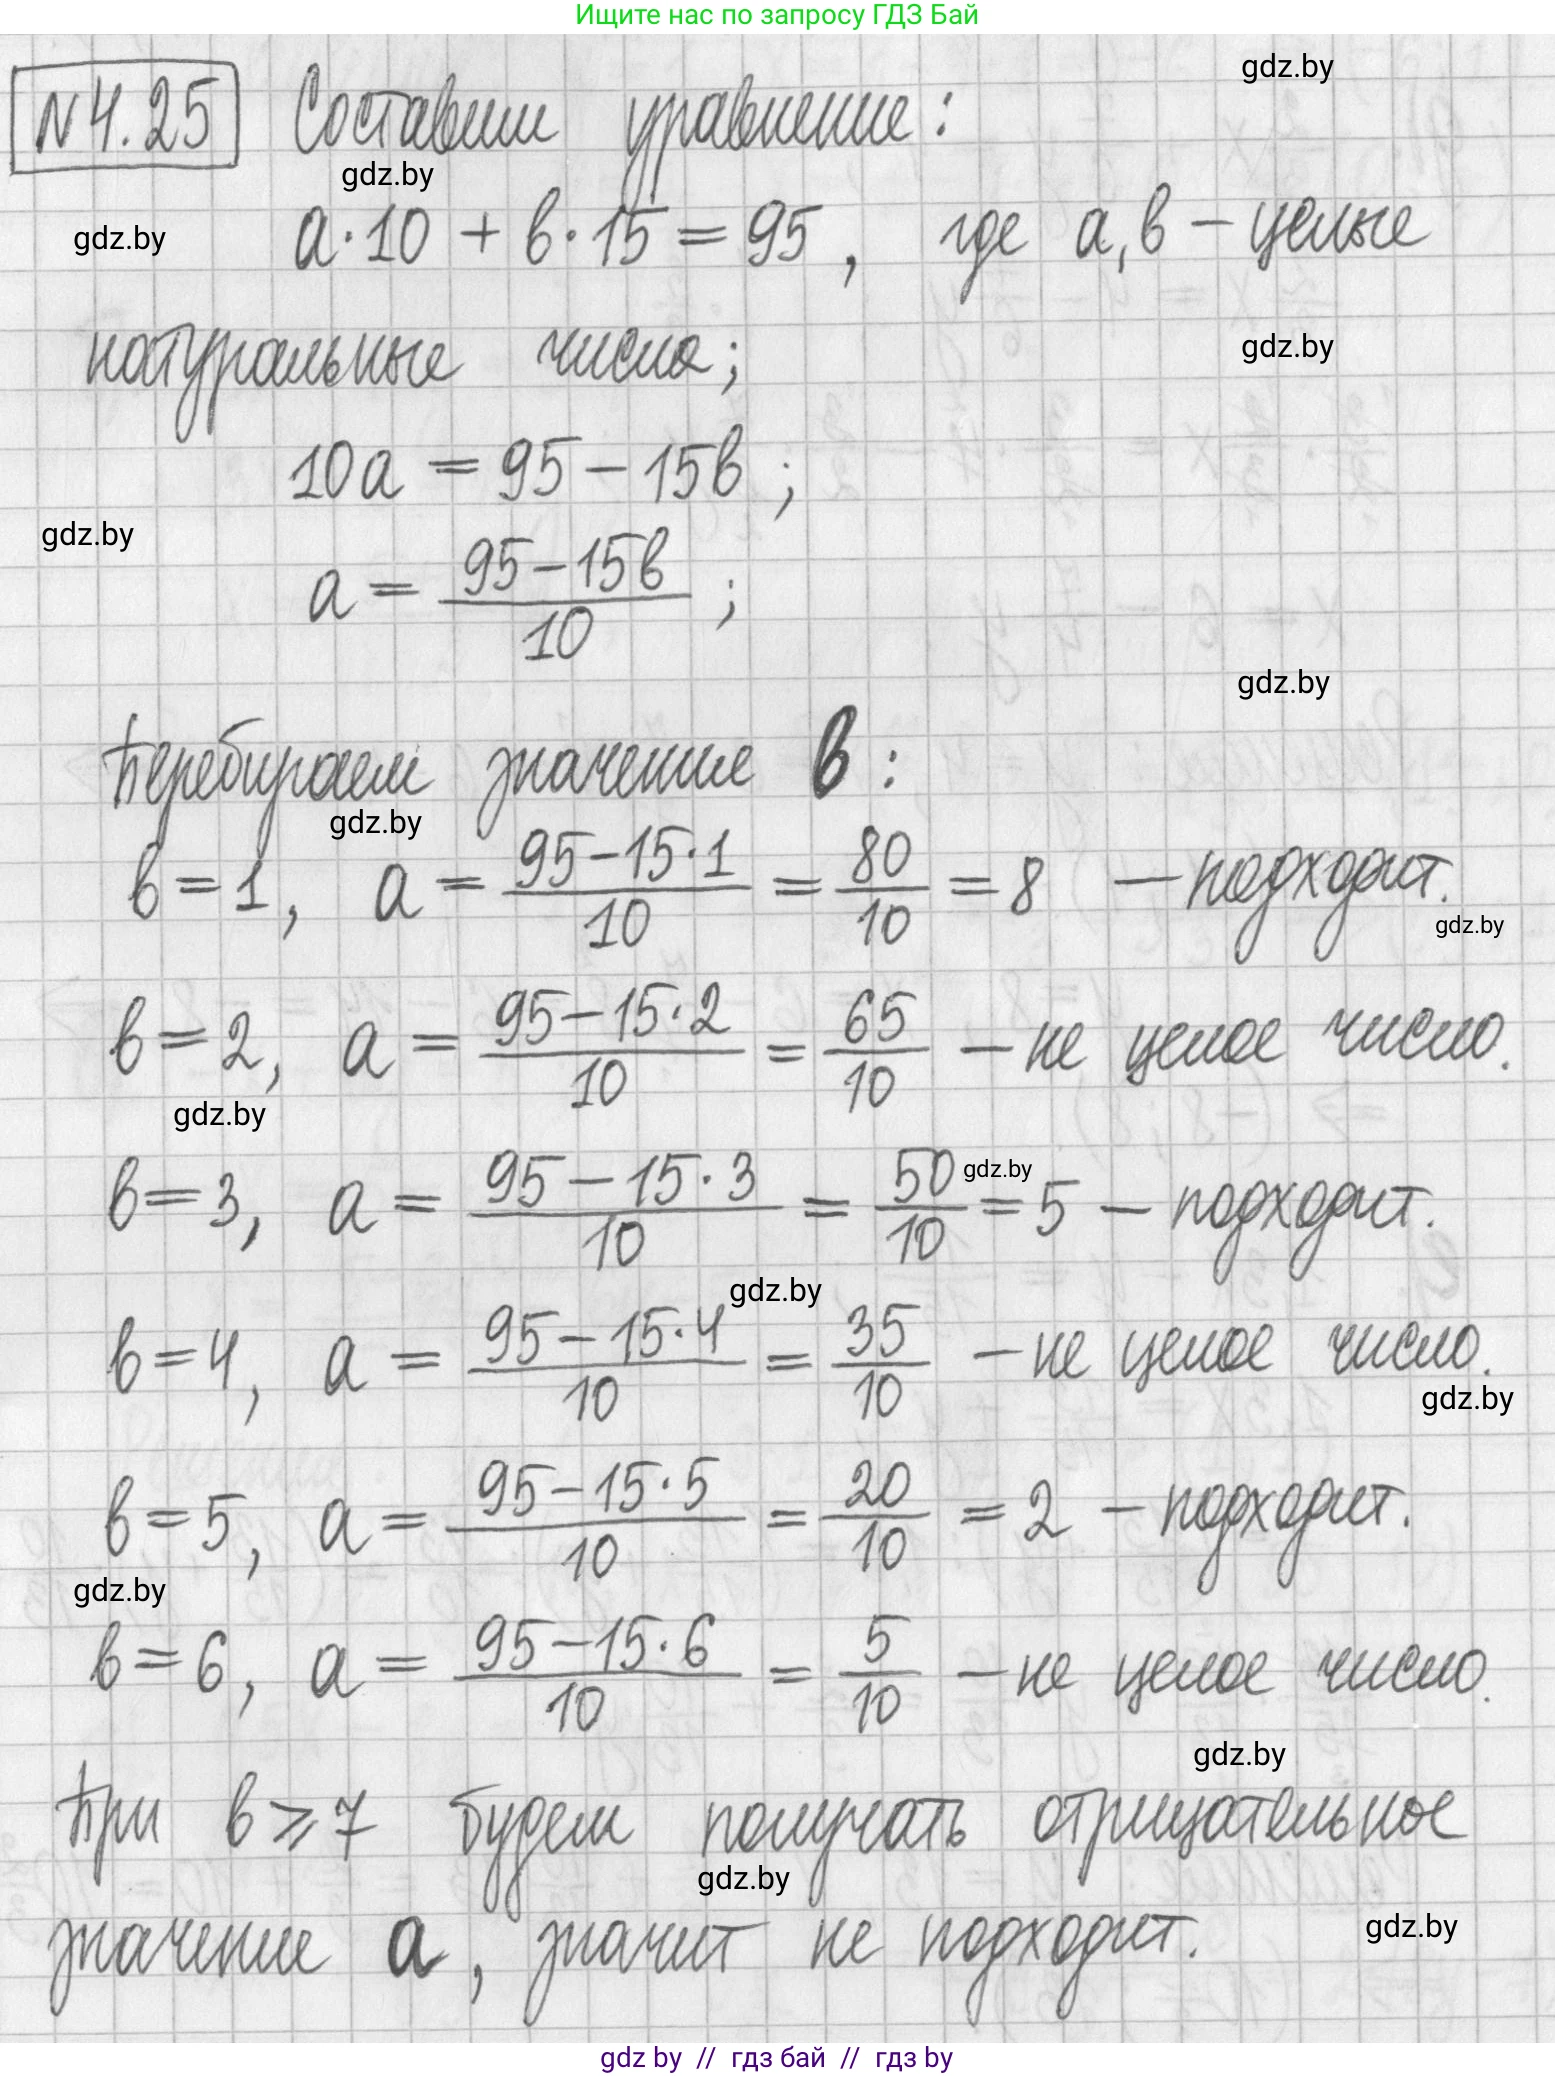 Ищите нас по запросу ГДЗ Бай
gdz.by
N 4.25 Составим уравнение:
gdz.by
a·10 + b·15 = 95, где a, b – целые
gdz.by
натуральные числа;
gdz.by
10a = 95 – 15b;
gdz.by
a = (95 – 15b)/10;
gdz.by
Перебираем значение b:
gdz.by
b = 1, a = (95 – 15·1)/10 = 80/10 = 8 – подходит.
gdz.by
b = 2, a = (95 – 15·2)/10 = 65/10 – не целое число.
gdz.by
b = 3, a = (95 – 15·3)/10 = 50/10 = 5 – подходит.
gdz.by
gdz.by
b = 4, a = (95 – 15·4)/10 = 35/10 – не целое число.
gdz.by
b = 5, a = (95 – 15·5)/10 = 20/10 = 2 – подходит.
gdz.by
b = 6, a = (95 – 15·6)/10 = 5/10 – не целое число.
gdz.by
При b ⩾ 7 будем получать отрицательное
gdz.by
значение a, значит не подходит.
gdz.by
gdz by // гдз бай // гдз by